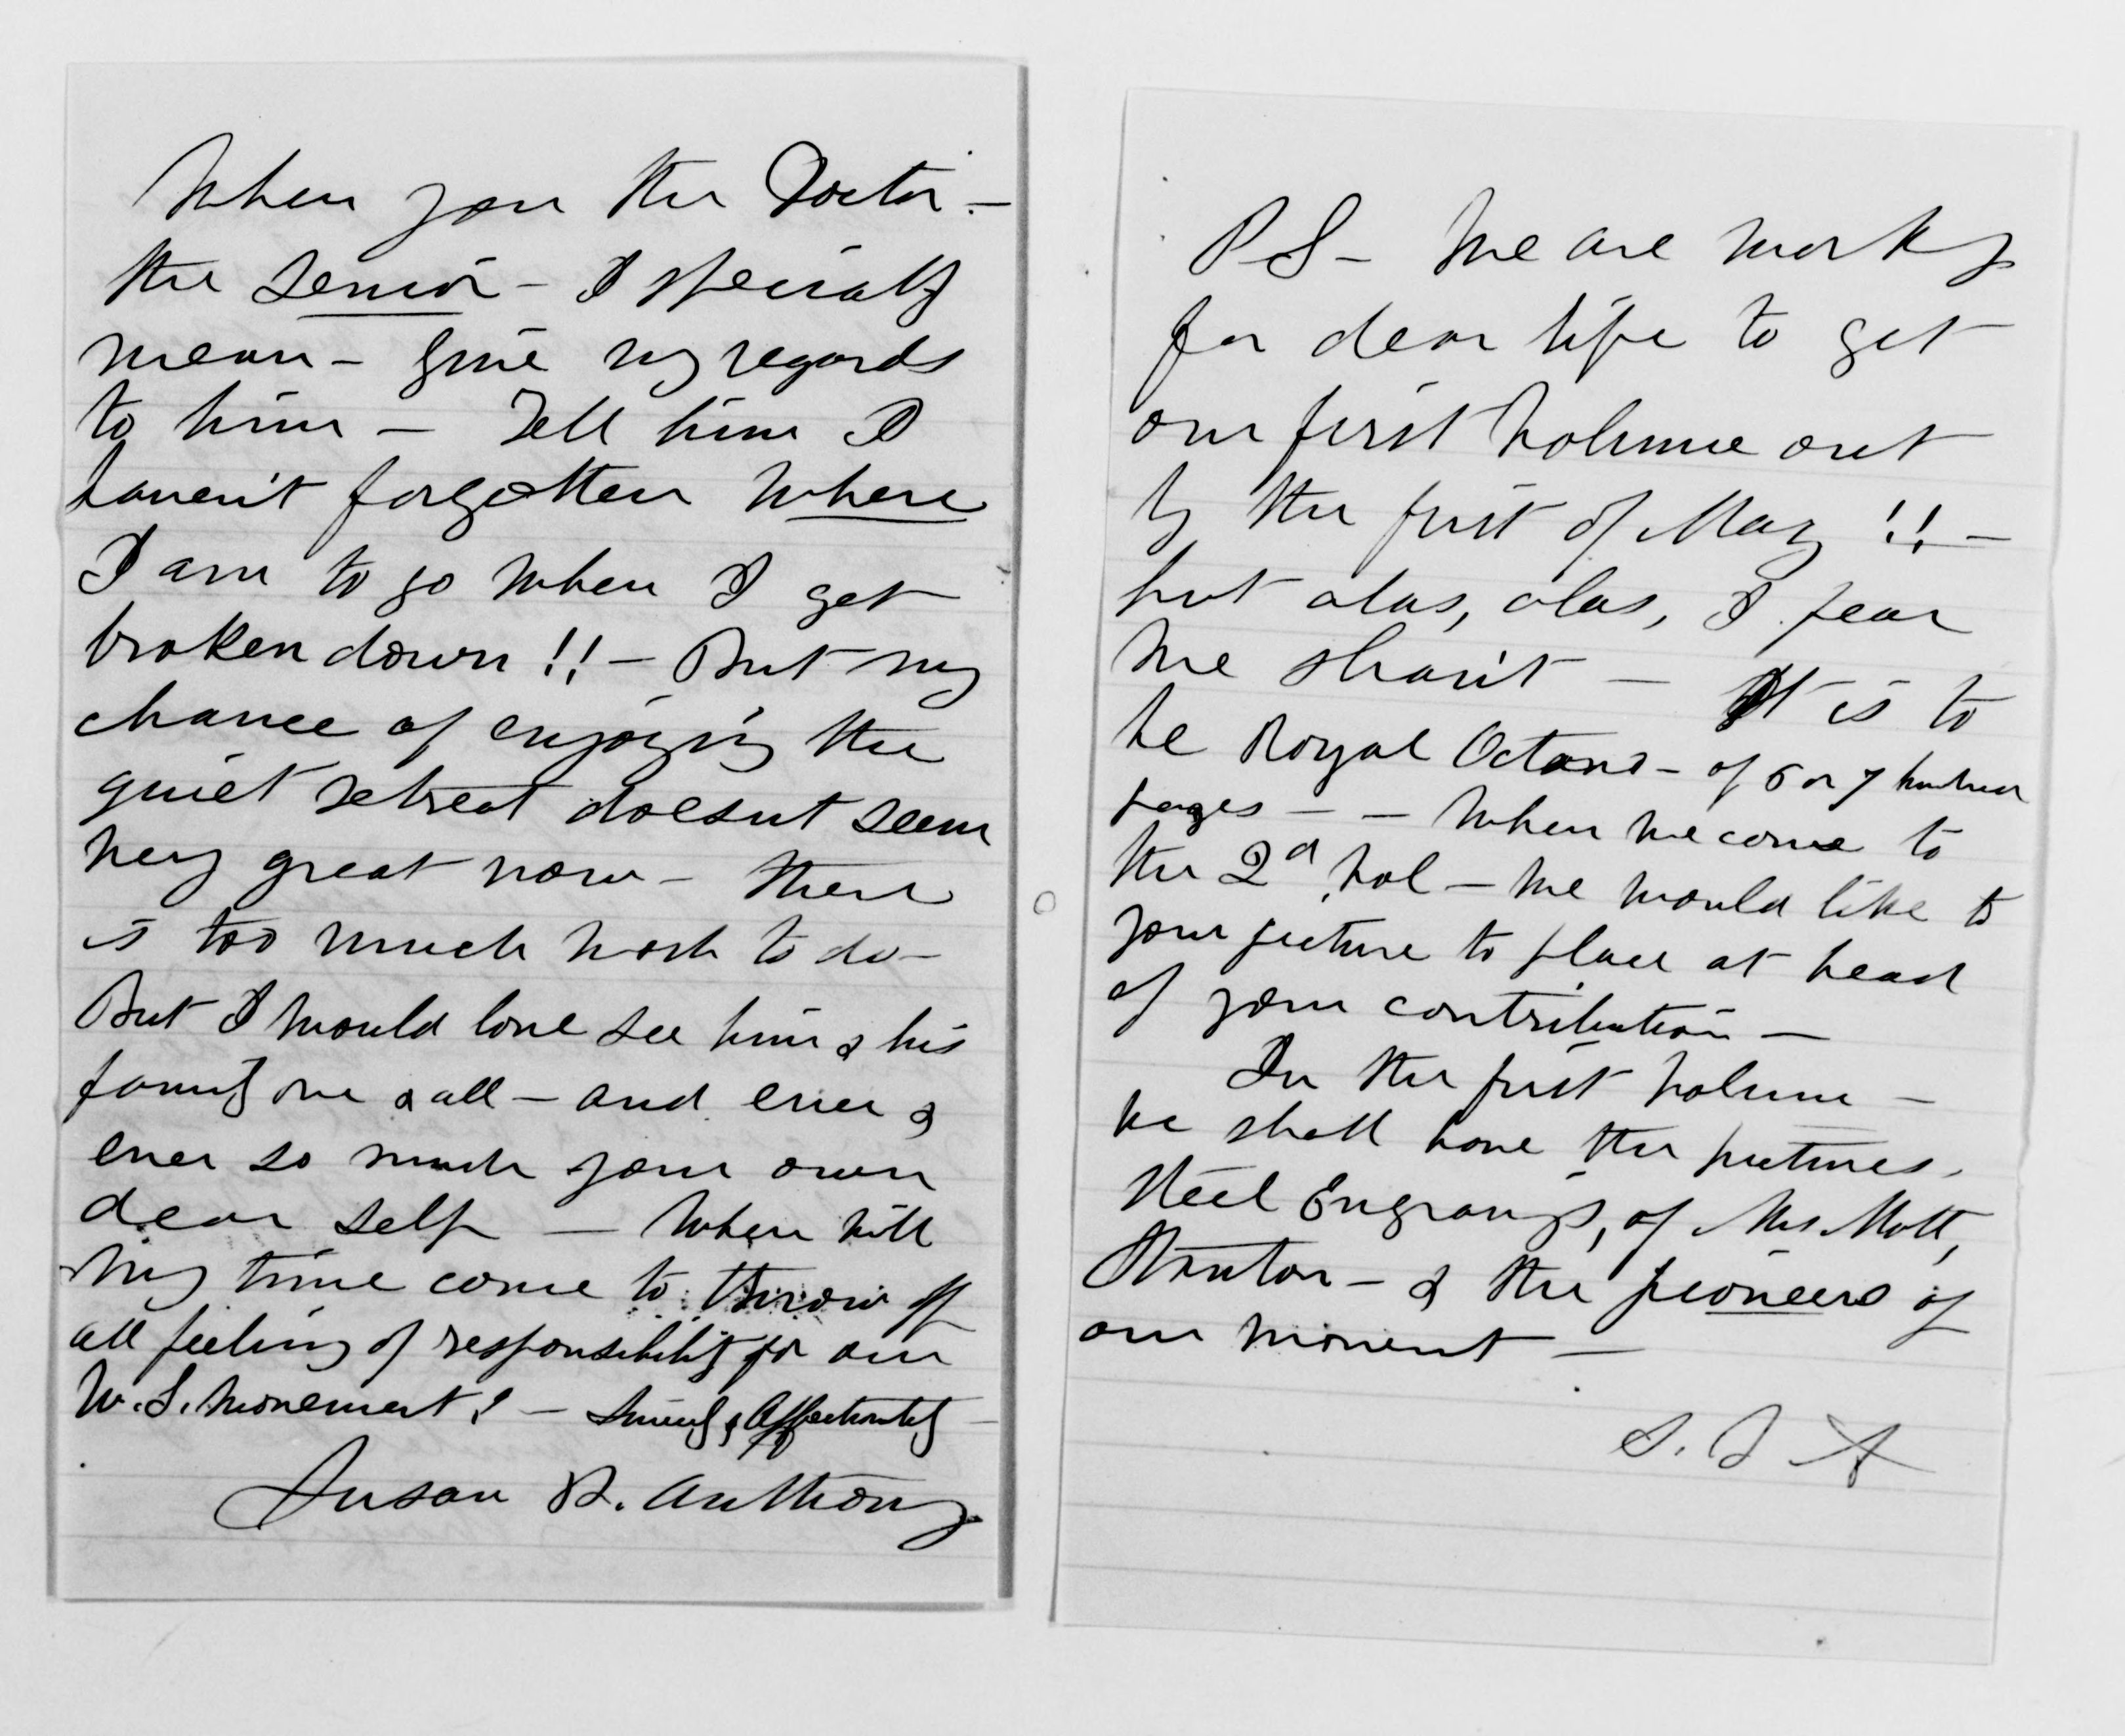 When you the Doctor -
the Senior - I specially
mean - give my regards
to him - Tell him I
haven't forgotten where
I am to go when I get
broken down !! - But my
chance of enjoying the
quiet retreat doesnt seem
very great now - there
is too much work to do -
But I would love see him & his
family one & all - and ever &
ever so much your own
dear self - When will
my time come to throw off
all feeling of responsibility for our
W. S. movement? - Sincerely & Affectionately -
Susan B. Anthony
PS - We are workg
for dear life to get
our first volume out
by the first of May !! -
but alas, alas, I fear
we shan't - It is to
be Royal Octavo - of 6 or 7 hundred
pages - - When we come to
the 2d vol - we would like to
your picture to place at head
of your contribution -
In the first volume -
we shall have the pictures,
Steel Engravings, of Mrs Mott,
Stanton - & the pioneers of
our movement -
S. B A